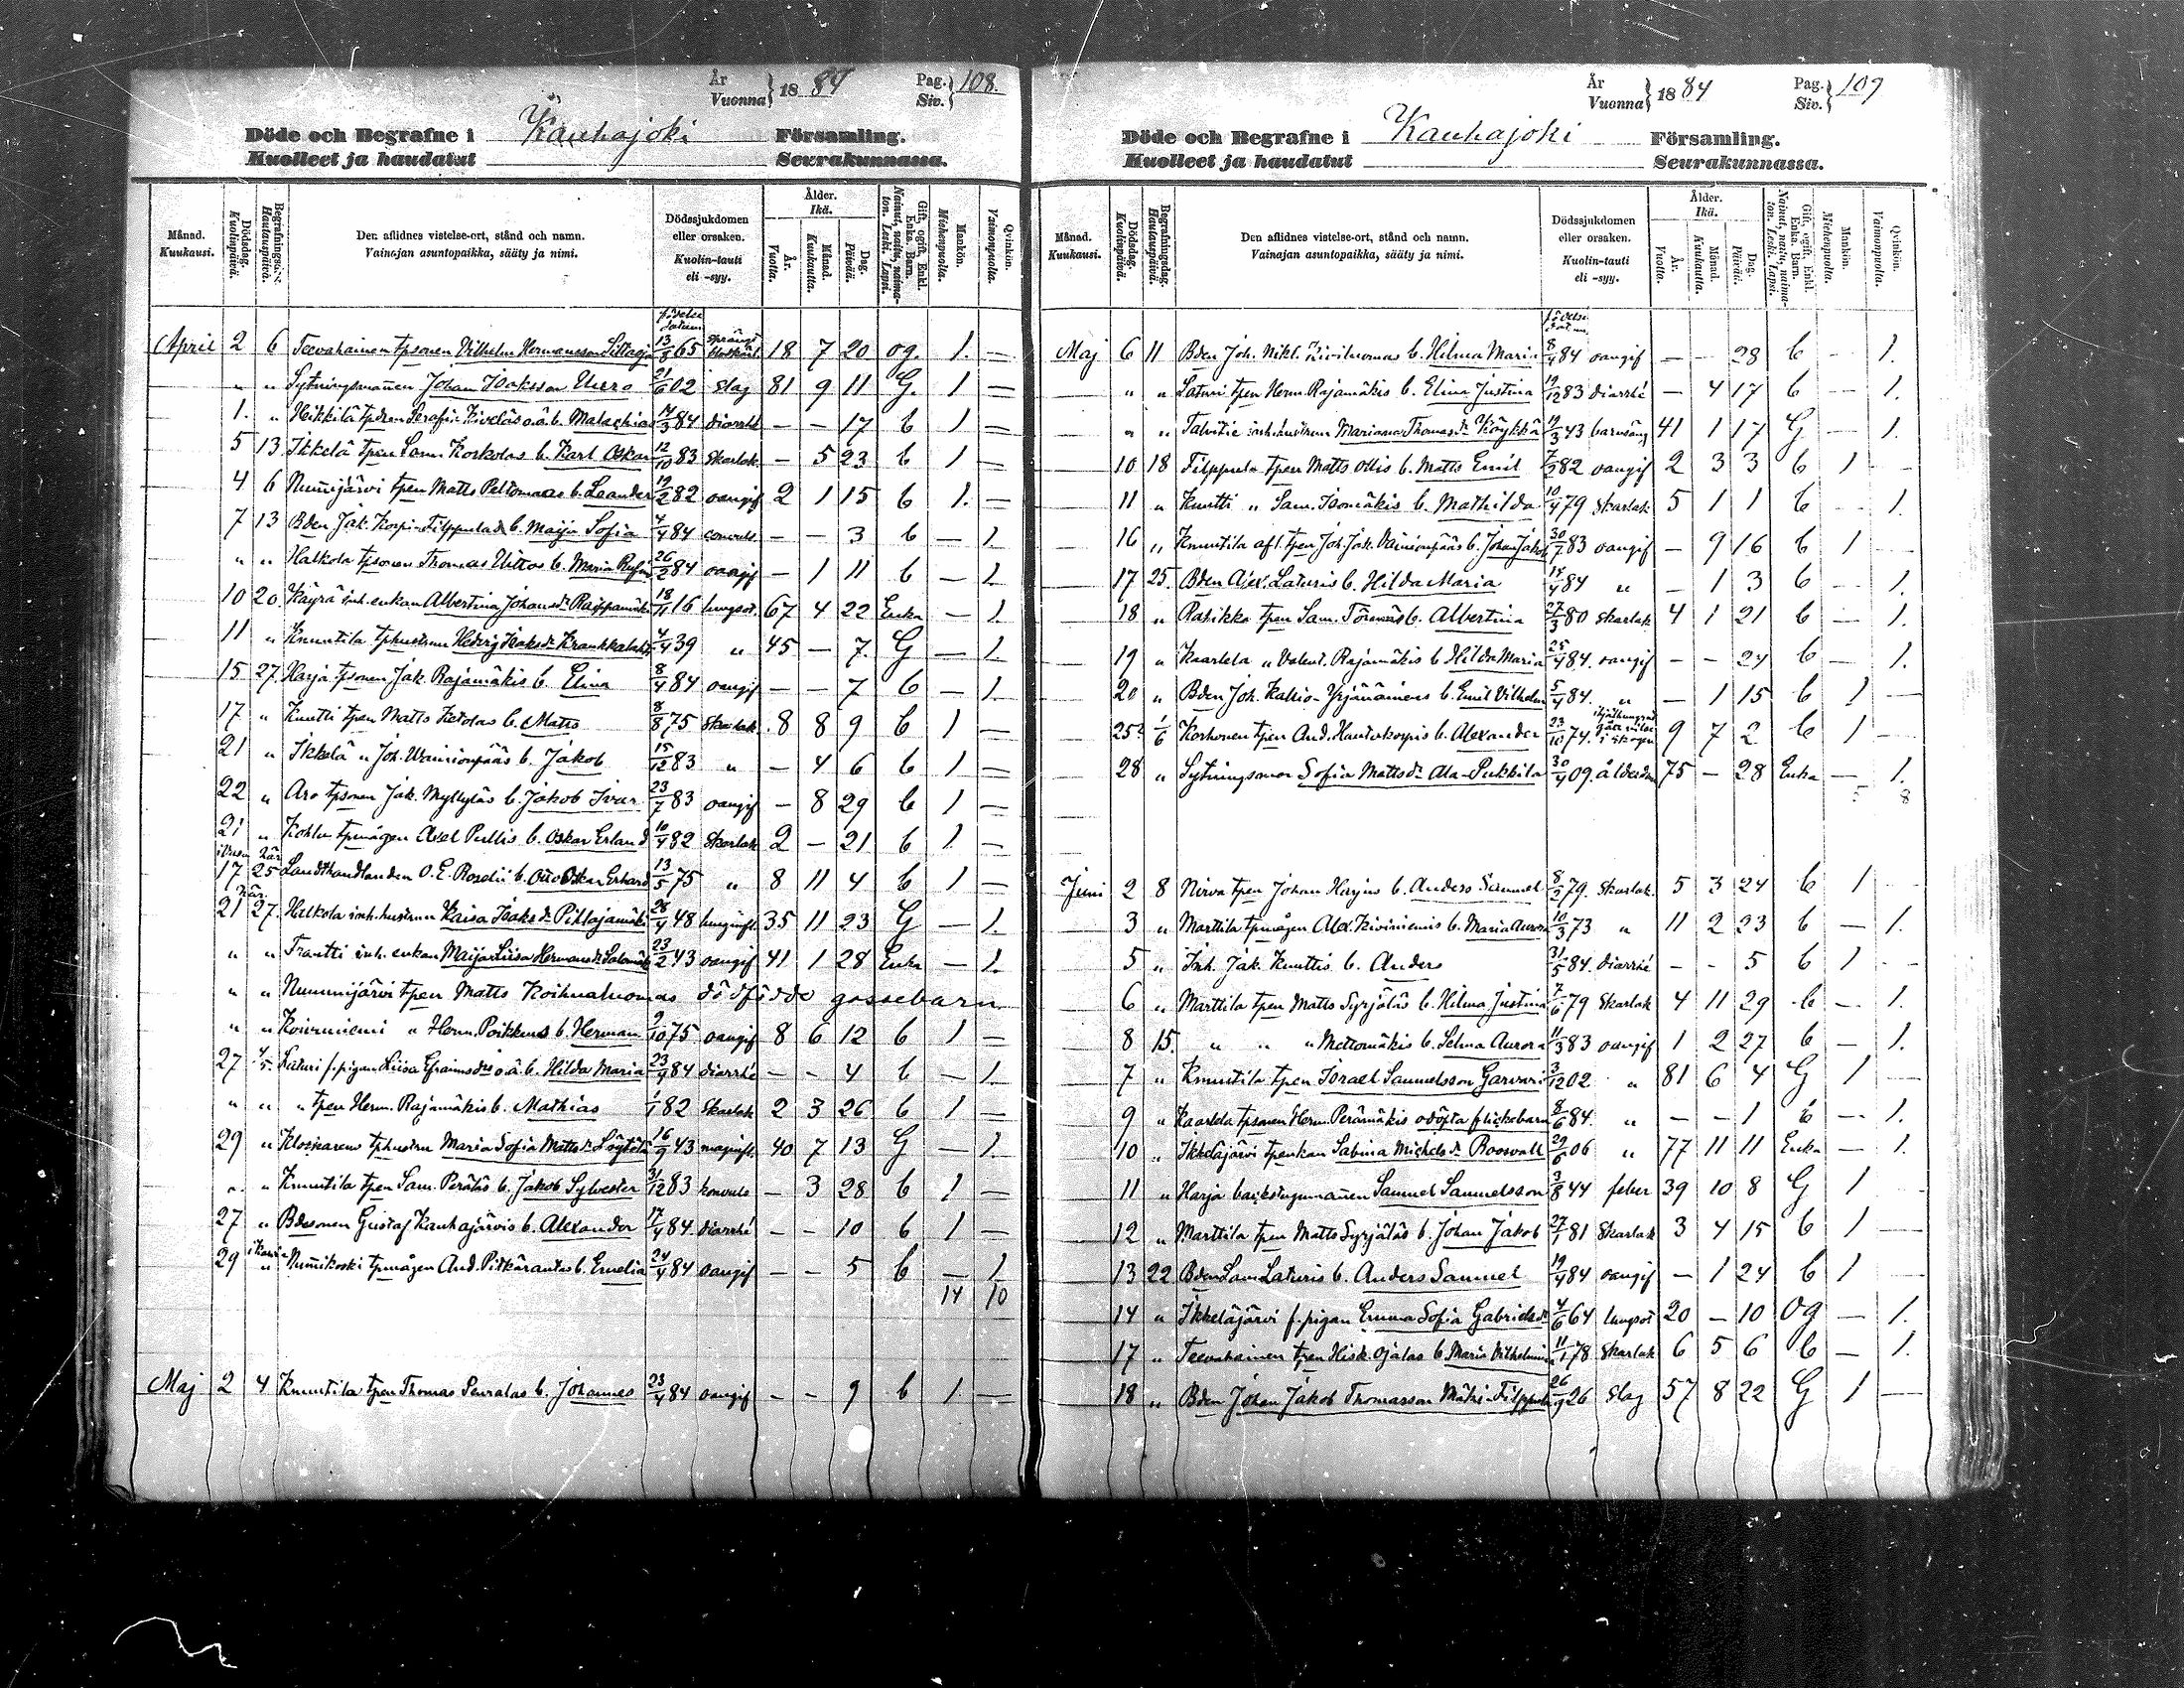 År Vuonna } 1884 Pag. Siv. } 108.
Döde och Begrafne i Kauhajoki Församling.
Kuolleet ja haudatut Seurakunnassa.
Månad. Kuukausi. Dödsdag. Kuolinpäivä. Begrafningsdag. Hautauspäivä. Den aflidnes vistelse-ort, stånd och namn. Vainajan asuntopaikka, sääty ja nimi. Dödssjukdomen eller orsaken. Kuolin-tauti eli -syy. Ålder. Ikä. År. Vuotta. Månad. Kuukautta. Dag. Päivää. Gift, ogift, Enkl. Enka. Barn. Nainut, naitu, naimaton. Leski. Lapsi. Mankön. Miehenpuolta. Qvinkön. Vaimonpuolta.
födelse datum
April 2 6 Teevahainen tpsonen Vilhelm Hermansson 13/8 65 18 7 20 og. 1. —
" " Sytningsmannen Johan Isaksson Uuro 21/6 02 slag 81 9 11 G. 1 —
1. " Heikkilä Serafia Kiveläs o.ä. b. Malachias 14/3 84 diarrhé — — 17 b 1 —
5 13 Ikkelä tpen Sam. Koskelas b. Karl Oskar 12/10 83 skarlak. — 5 23 b 1 —
4 6 Nummijärvi tpen Matts Peltomaas b. Leander 19/2 82 oangif 2 1 15 b 1. —
7 13 Bden Jak. Korpi-Filppulas b. Maija Sofia 4/4 84 convuls. — — 3 b — 1.
" " Halkola tpsonen Thomas Uittos b. Maria 26/2 84 oangif — 1 11 b — 1
10 20. Käyrä inh. enkan Albertina Johansdr 18/11 16 lungsot. 67 4 22 Enka — 1.
11 " Knuutila tphustrun Hedvig Isaksdr 4/4 39 " 45 — 7. G — 1.
15 27. Harja tpsonen Jak. Rajamäkis b. Elina 8/4 84 oangif — — 7 b — 1.
17 " Knutti tpen Matts Ketolas b. Matts 8/8 75 skarlak. 8 8 9 b 1 —
21 " Ikkelä " Joh. Wainionpääs b. Jakob 15/12 83 " — 4 6 b 1 —
22 " Aro tpsonen Jak. Myllyläs b. Jakob Ivar 23/7 83 oangif — 8 29 b 1 —
21 " tpmågen Axel Pullis b. Oskar Erland 10/4 82 skarlak 2 — 21. b 1. —
17 25 Landthandlanden O. E. b. Otto Oskar Erhard 13/5 75 " 8 11 4 b 1 —
21 27. Halkola inh. hustrun Kaisa Isaksdr Pihlajamäki 28/4 48 lunginfl. 35 11 23 G — 1.
" " Trautti inh. enkan Maija Liisa Hermansdr 23/2 43 oangif 41 1 28 Enka — 1.
" " Nummijärvi tpen Matts Koihnaluomas dödfödde gossebarn
" " Koivuniemi " Herm. Poikkeus b. Herman 9/10 75 oangif 8 6 12 b 1 —
27 4/5. Laturi f. pigan Liisa Efraimsdrs o.ä. b. Hilda Maria 23/4 84 diarrhé — — 4 b — 1.
" " " tpen Herm. Rajamäkis b. Mathias 1/1 82 skarlak 2 3 26 b 1 —
29 " tphustrun Maria Sofia Mattsdr 16/9 43 maginfl. 40 7 13 G — 1.
" " Knuutila tpen Sam. Peräläs b. Jakob Sylvester 31/12 83 konvuls — 3 28 b 1 —
27 " Bdesonen Gustaf Kauhajärvis b. Alexander 17/4 84 diarrhé — — 10 b 1 —
29 " Nummikoski tpmågen And. Pitkärantas b. Emelia 24/4 84 oangif — — 5 b — 1
14 10
Maj 2 4 Knuutila tpen Thomas Peuralas b. Johannes 23/4 84 oangif — — 9 b 1. —
År Vuonna } 1884 Pag. Siv. } 109
Döde och Begrafne i Kauhajoki Församling.
Kuolleet ja haudatut Seurakunnassa.
Månad. Kuukausi. Dödsdag. Kuolinpäivä. Begrafningsdag. Hautauspäivä. Den aflidnes vistelse-ort, stånd och namn. Vainajan asuntopaikka, sääty ja nimi. Dödssjukdomen eller orsaken. Kuolin-tauti eli -syy. Ålder. Ikä. År. Vuotta. Månad. Kuukautta. Dag. Päivää. Gift, ogift, Enkl. Enka. Barn. Nainut, naitu, naimaton. Leski. Lapsi. Mankön. Miehenpuolta. Qvinkön. Vaimonpuolta.
födelse datum
Maj 6 11 Bden Joh. Nikl. Kiviluomas b. Hilma Maria 8/4 84 oangif — — 28 b — 1.
" " Laturi tpen Herm. Rajamäkis b. Elina Justina 19/12 83 diarrhé — 4 17 b — 1.
" " Talvitie inh. hustrun Mariana Thomasdr Köykkä 19/3 43 barnsäng 41 1 17 G — 1.
10 18 Filppula tpen Matts Ollis b. Matts Emil 7/2 82 oangif 2 3 3 b 1 —
11 " Knutti " Sam. b. Mathilda 10/4 79 skarlak 5 1 1 b — 1.
16 " Knuutila afl. tpen Joh. Jak. Vainionpääs b. Johan Jakob 30/7 83 oangif — 9 16 b 1 —
17 25. Bden Alex. Laturis b. Hilda Maria 14/4 84 " — 1 3 b — 1.
18 " Ratikka tpen Sam. b. Albertina 27/3 80 skarlak 4 1 21 b — 1.
19 " Kaarlela " Valent. Rajamäkis b. Hilda Maria 25/4 84. oangif — — 24 b — 1.
20 " Bden Joh. Kallio-Yrjänäinens b. Emil Vilhelm 5/4 84. " — 1 15 b 1 —
25? 1/6 Korhonen tpen And. Hautakorpis b. Alexander 23/10 74. ihjälhungrad gått vilse i skogen 9 7 2 b 1 —
28 " Sytningsman Sofia Mattsdr Ala-Pukkila 30/4 09. ålderdom 75 — 28 Enka — 1.
5 8
Juni 2 8 Nirva tpen Johan Harjus b. Anders Samuel 8/2 79. skarlak. 5 3 24 b 1 —
3 " Marttila tpmågen Alex. Kiviniemis b. Maria Aurora 10/3 73 " 11 2 23 b — 1.
5 " Inh. Jak. Knuttis b. Anders 31/5 84. diarrhé — — 5 b 1 —
6 " Marttila tpen Matts Syrjäläs b. Hilma Justina 7/6 79 skarlak 4 11 29 b — 1.
8 15. " " " Mettomäkis b. Selma Aurora 11/3 83 oangif 1 2 27 b — 1.
7 " Knuutila tpen Israel Samuelsson Garvari 3/12 02 " 81 6 4 G 1 —
9 " Kaarlela tpsonen Herm. Perämäkis odöpta flickebarn 8/6 84. " — — 1 b — 1.
10 " Ikkeläjärvi tpenkan Sabina Michelsdr Roosvall 29/6 06 " 77 11 11 Enka — 1.
11 " Harja backstugumannen Samuel Samuelsson 3/8 44 feber 39 10 8 G 1 —
12 " Marttila tpen Matts Syrjäläs b. Johan Jakob 27/1 81 skarlak 3 4 15 b 1 —
13 22 Bden Sam Laturis b. Anders Samuel 19/4 84 oangif — 1 24 b 1 —
14 " Ikkeläjärvi f. pigan Emma Sofia Gabrielsdr 4/6 64 lungsot 20 — 10 Og — 1.
17 " Teevahainen tpen Hisk. Ojalas b. Maria Vilhelmina 11/1 78 skarlak 6 5 6 b — 1.
18 " Bden Johan Jakob Thomasson Mäki-Filppula 26/9 26 slag 57 8 22 G 1 —